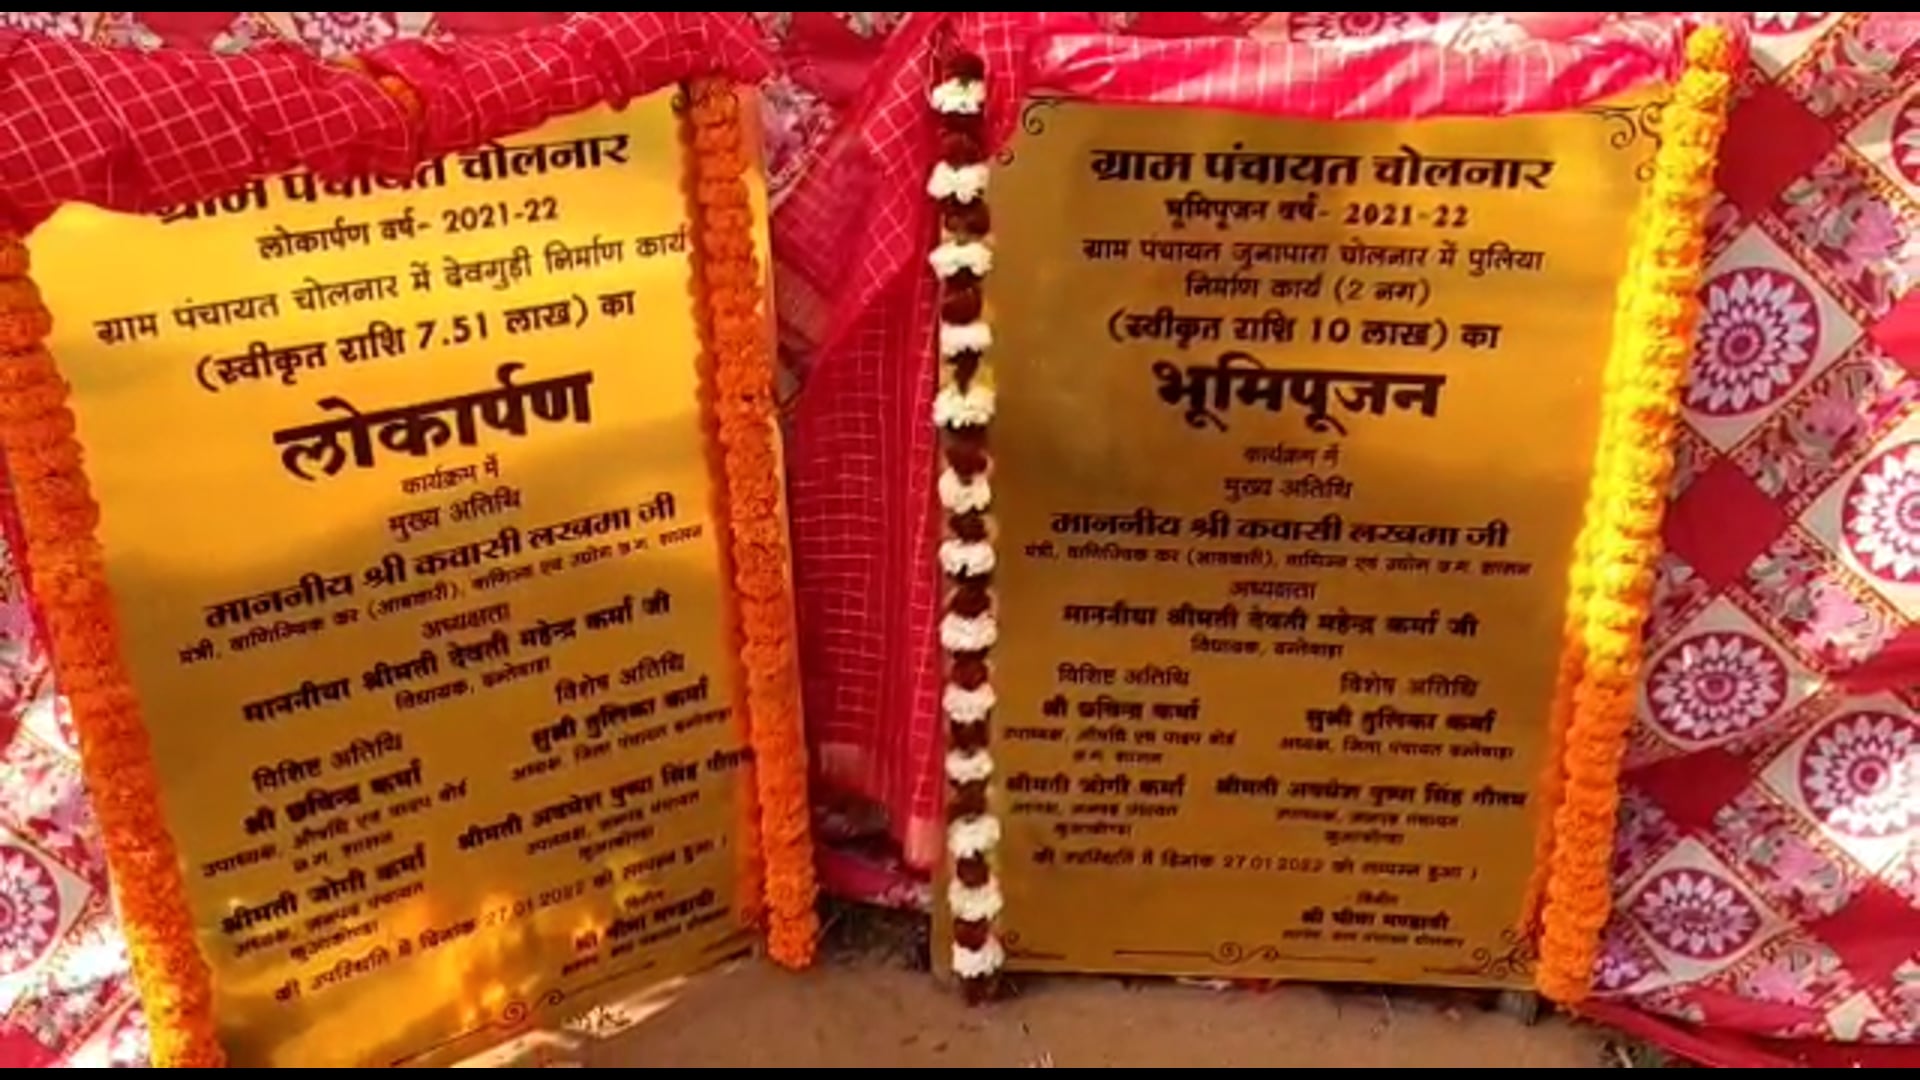 ग्राम पंचायत चोलनार
लोकार्पण वर्ष- 2021-22
ग्राम पंचायत चोलनार में देवगुड़ी निर्माण कार्य
(स्वीकृत राशि 7.51 लाख) का
लोकार्पण
कार्यक्रम में
मुख्य अतिथि
माननीय श्री कवासी लखमा जी
मंत्री, वाणिज्यिक कर (आबकारी), वाणिज्य एवं उद्योग छ.ग. शासन
अध्यक्षता
माननीया श्रीमती देवती महेन्द्र कर्मा जी
विधायक, दन्तेवाड़ा
विशिष्ट अतिथि
श्री छविन्द्र कर्मा
उपाध्यक्ष, औषधि एवं पादप बोर्ड
छ.ग. शासन
श्रीमती जोगी कर्मा
अध्यक्ष, जनपद पंचायत
कुआकोण्डा
विशेष अतिथि
सुश्री तुलिका कर्मा
अध्यक्ष, जिला पंचायत दन्तेवाड़ा
श्रीमती अवधेश पुष्पा सिंह गौतम
उपाध्यक्ष, जनपद पंचायत
कुआकोण्डा
की उपस्थिति में दिनांक 27.01.2022 को सम्पन्न हुआ ।
विनीत
श्री भीमा मण्डावी
ग्राम पंचायत चोलनार
भूमिपूजन वर्ष- 2021-22
ग्राम पंचायत जुनापारा चोलनार में पुलिया
निर्माण कार्य (2 नग)
(स्वीकृत राशि 10 लाख) का
भूमिपूजन
कार्यक्रम में
मुख्य अतिथि
माननीय श्री कवासी लखमा जी
मंत्री, वाणिज्यिक कर (आबकारी), वाणिज्य एवं उद्योग छ.ग. शासन
अध्यक्षता
माननीया श्रीमती देवती महेन्द्र कर्मा जी
विधायक, दन्तेवाड़ा
विशिष्ट अतिथि
श्री छविन्द्र कर्मा
उपाध्यक्ष, औषधि एवं पादप बोर्ड
छ.ग. शासन
श्रीमती जोगी कर्मा
अध्यक्ष, जनपद पंचायत
कुआकोण्डा
विशेष अतिथि
सुश्री तुलिका कर्मा
अध्यक्ष, जिला पंचायत दन्तेवाड़ा
श्रीमती अवधेश पुष्पा सिंह गौतम
उपाध्यक्ष, जनपद पंचायत
कुआकोण्डा
की उपस्थिति में दिनांक 27.01.2022 को सम्पन्न हुआ ।
विनीत
श्री भीमा मण्डावी